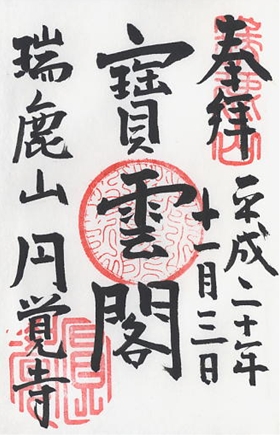 奉拝
平成二十年
十一月三日
寶雲閣
瑞鹿山 円覚寺